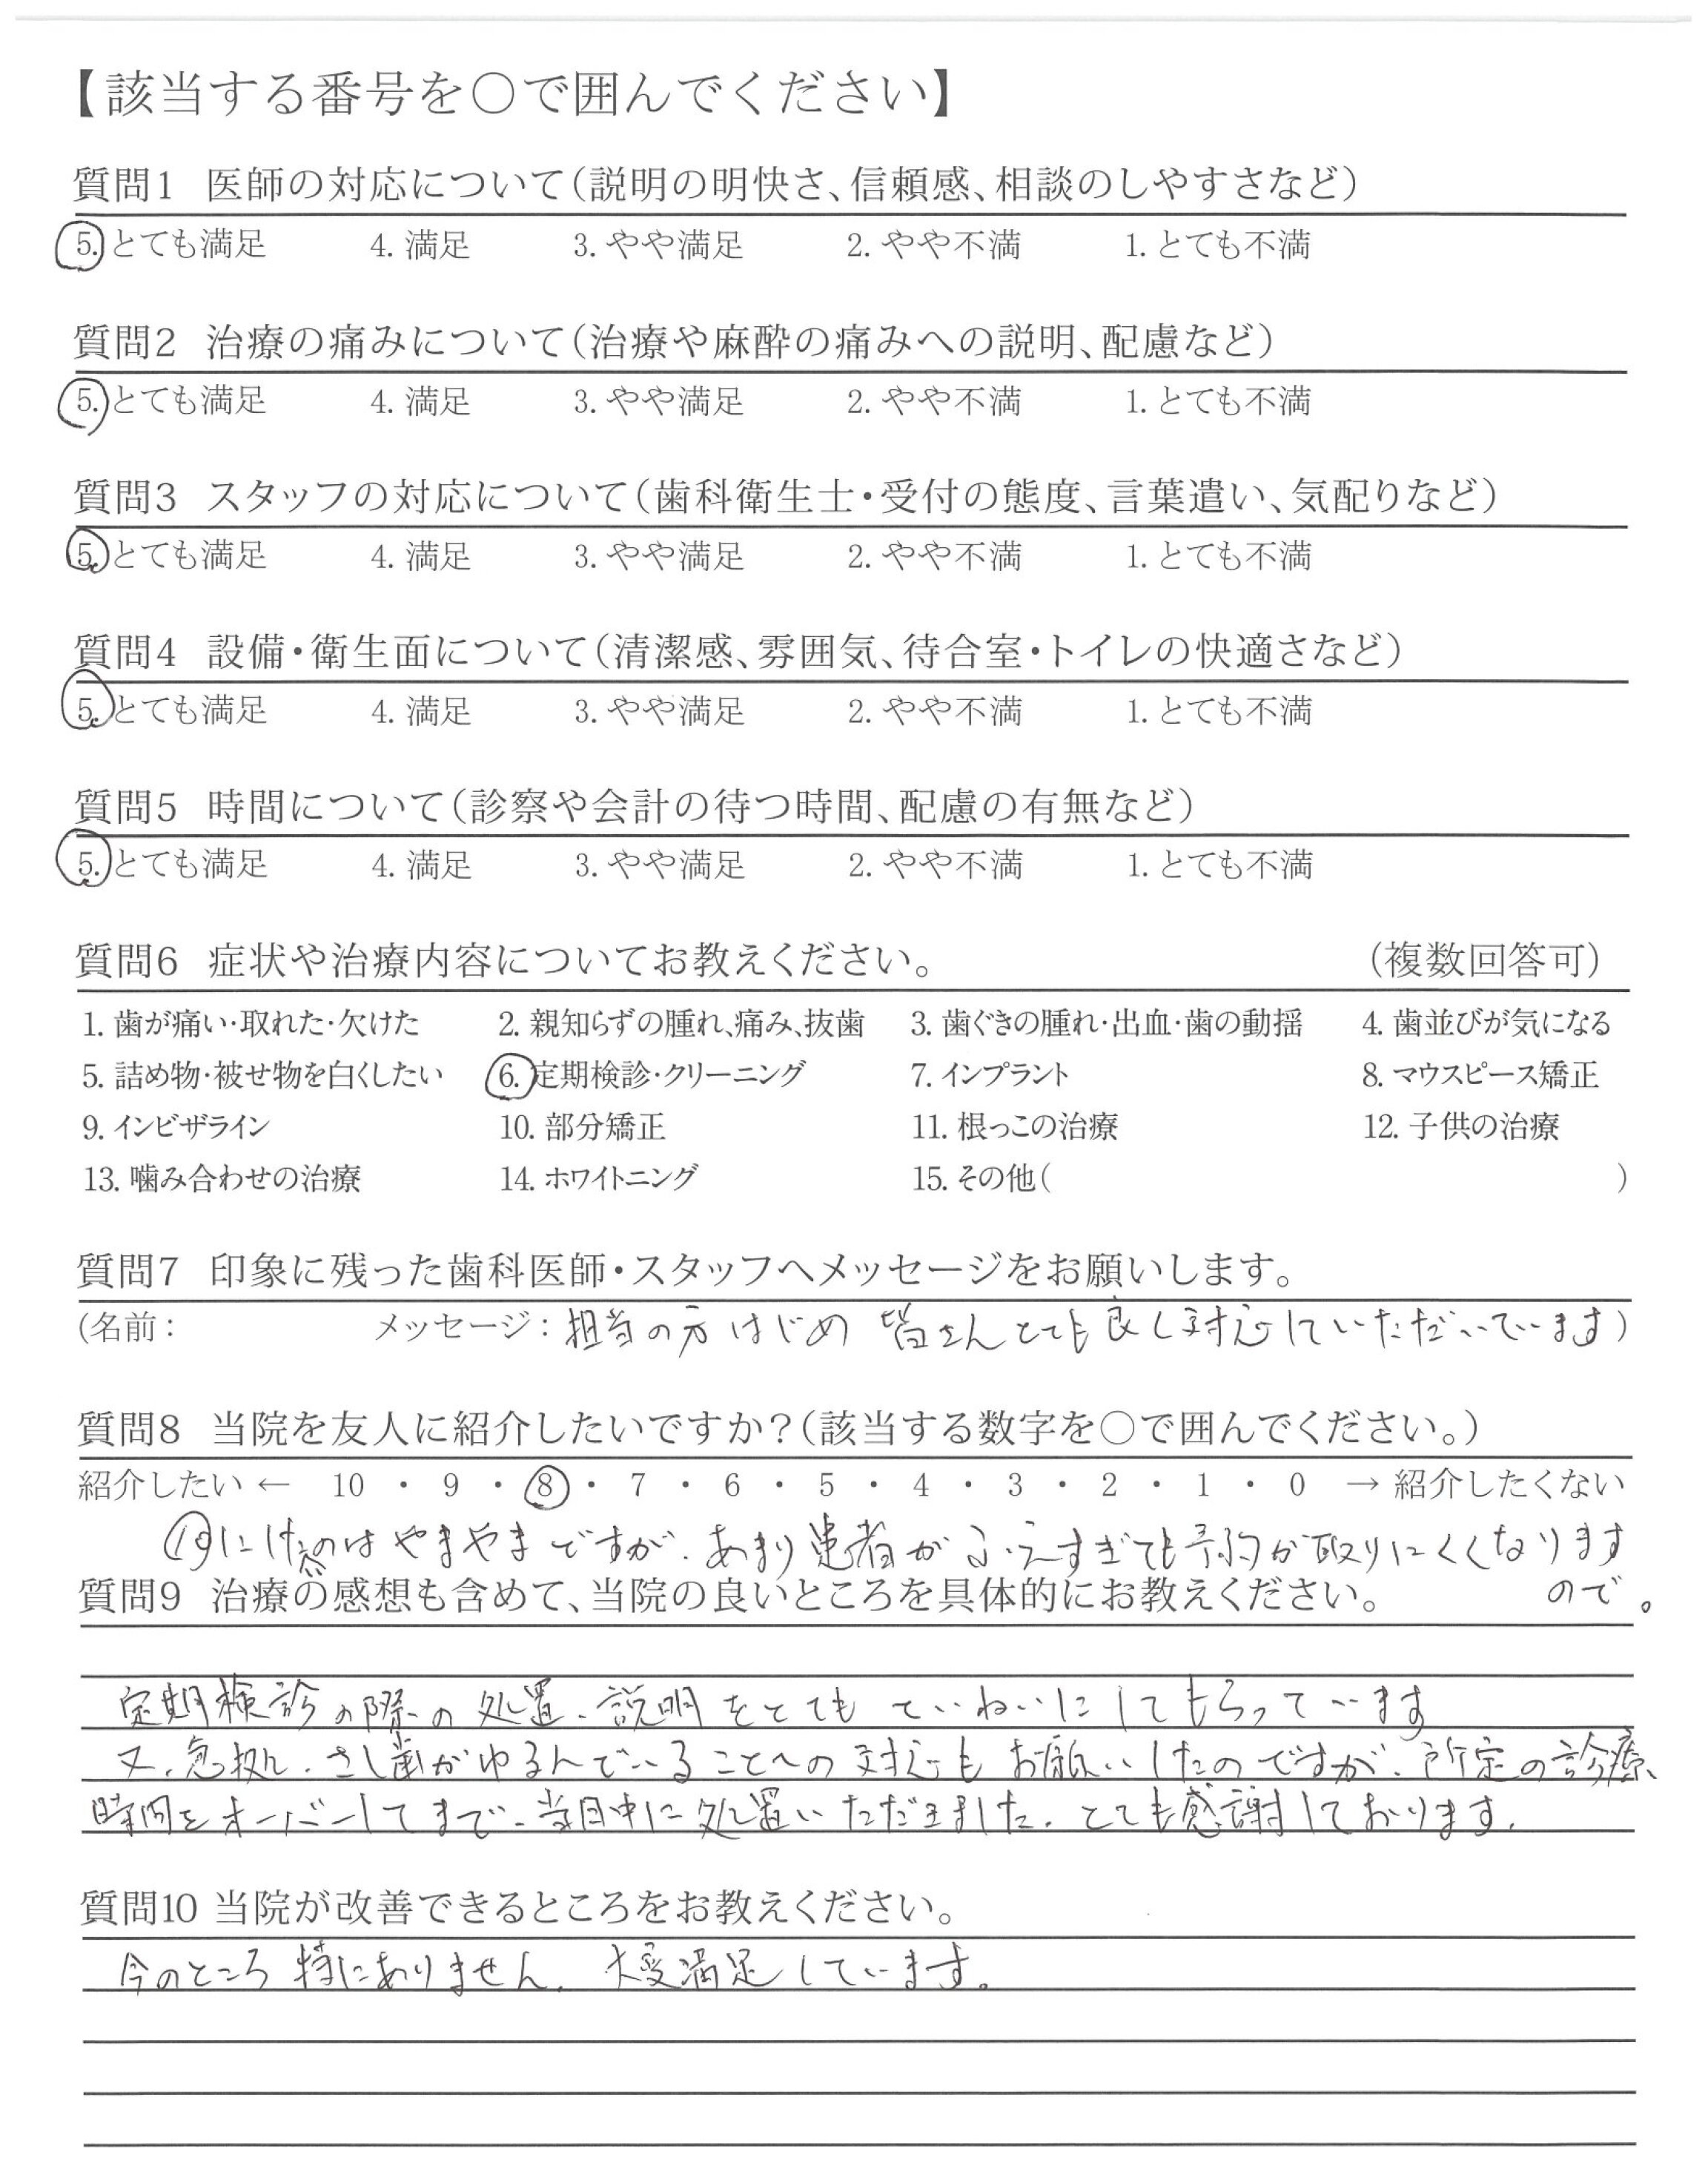 【該当する番号を○で囲んでください】
質問1 医師の対応について(説明の明快さ、信頼感、相談のしやすさなど)
5. とても満足 4. 満足 3. やや満足 2. やや不満 1. とても不満
質問2 治療の痛みについて(治療や麻酔の痛みへの説明、配慮など)
5. とても満足 4. 満足 3. やや満足 2. やや不満 1. とても不満
質問3 スタッフの対応について(歯科衛生士・受付の態度、言葉遣い、気配りなど)
5. とても満足 4. 満足 3. やや満足 2. やや不満 1. とても不満
質問4 設備・衛生面について(清潔感、雰囲気、待合室・トイレの快適さなど)
5. とても満足 4. 満足 3. やや満足 2. やや不満 1. とても不満
質問5 時間について(診察や会計の待つ時間、配慮の有無など)
5. とても満足 4. 満足 3. やや満足 2. やや不満 1. とても不満
質問6 症状や治療内容についてお教えください。 (複数回答可)
1. 歯が痛い・取れた・欠けた 2. 親知らずの腫れ、痛み、抜歯 3. 歯ぐきの腫れ・出血・歯の動揺 4. 歯並びが気になる
5. 詰め物・被せ物を白くしたい 6. 定期検診・クリーニング 7. インプラント 8. マウスピース矯正
9. インビザライン 10. 部分矯正 11. 根っこの治療 12. 子供の治療
13. 噛み合わせの治療 14. ホワイトニング 15. その他( )
質問7 印象に残った歯科医師・スタッフへメッセージをお願いします。
(名前: メッセージ: 担当の方はじめ 皆さんとても良く対応していただいています)
質問8 当院を友人に紹介したいですか?(該当する数字を○で囲んでください。)
紹介したい ← 10 ・ 9 ・ 8 ・ 7 ・ 6 ・ 5 ・ 4 ・ 3 ・ 2 ・ 1 ・ 0 → 紹介したくない
⑩にしたいのはやまやまですが、あまり患者がふえすぎても予約が取りにくくなります
ので。
質問9 治療の感想も含めて、当院の良いところを具体的にお教えください。
定期検診の際の処置、説明をとてもていねいにしてもらっています
又、急拠、さし歯がゆるんでいることへの対応もお願いしたのですが、所定の診療
時間をオーバーしてまで、当日中に処置いただきました。とても感謝しております。
質問10 当院が改善できるところをお教えください。
今のところ特にありません。大変満足しています。